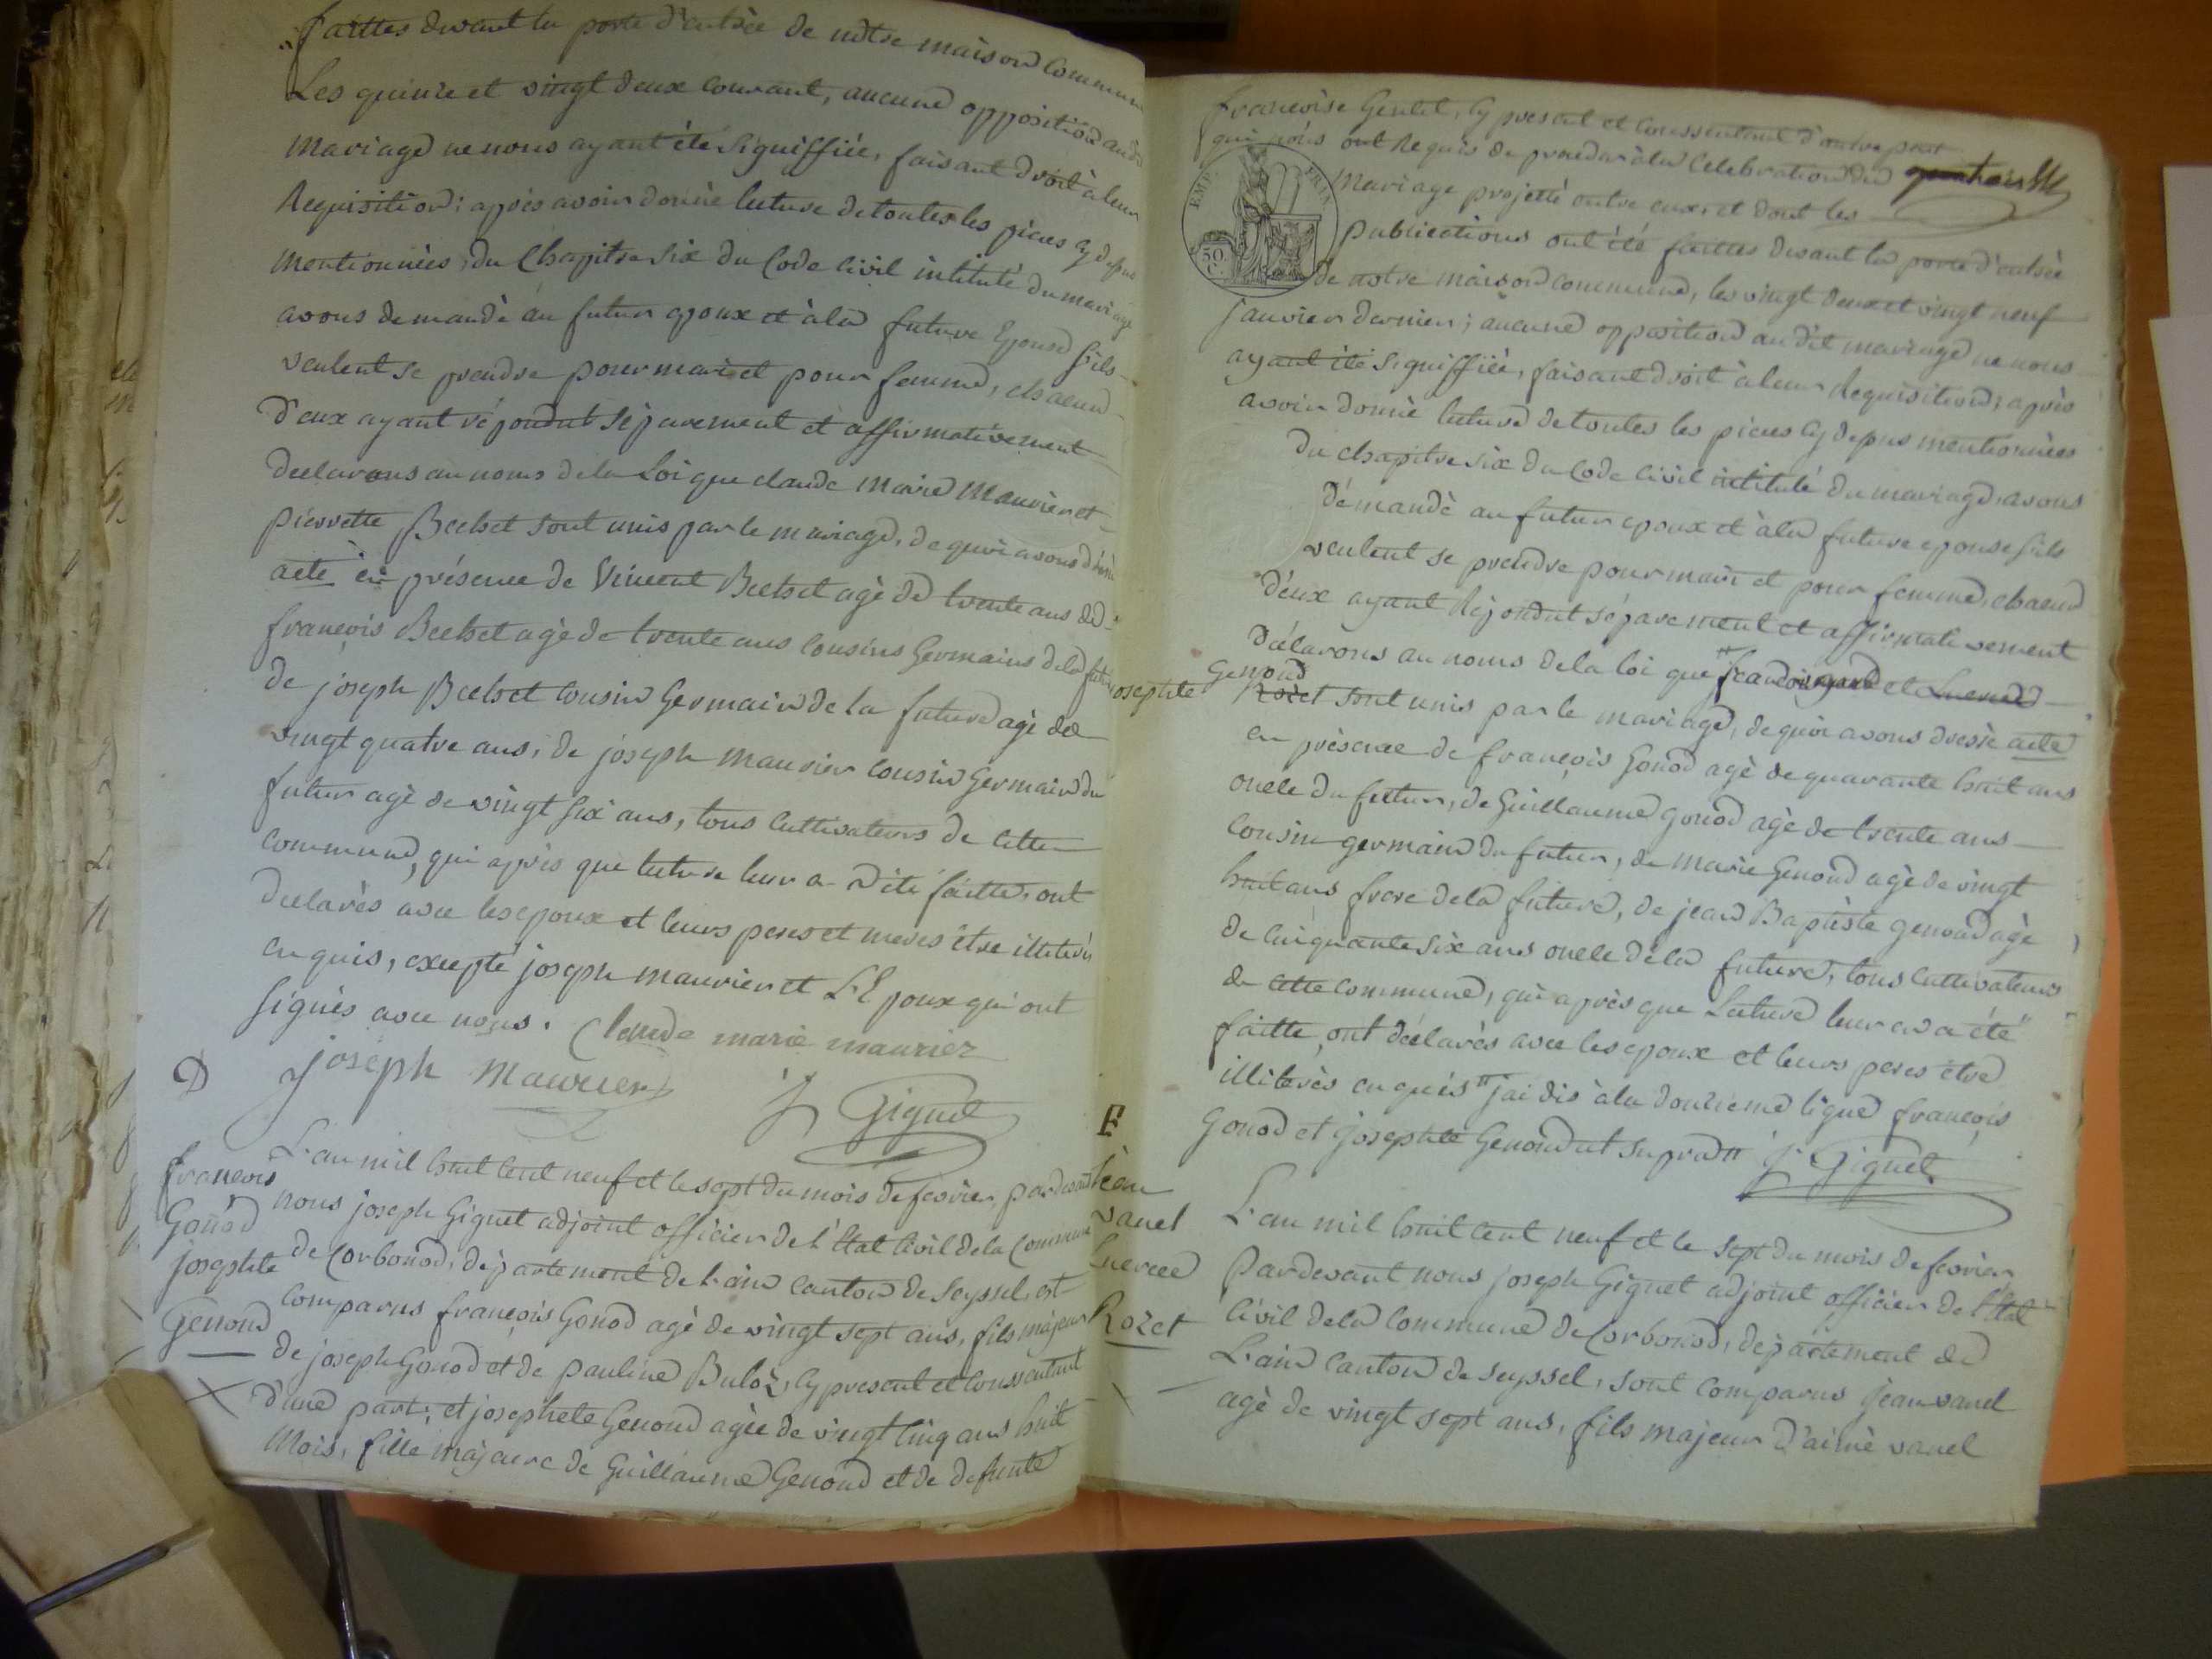 faittes devant la porte d'entrée de nôtre maison commune
Les quinze et vingt deux courant, aucune opposition audit
mariage ne nous ayant été signiffiée, faisant droit à leur
Requisition; après avoir donné lecture de toutes les pieces cy depus
mentionnées, du Chapitre six du Code Civil intitulé du mariage
avons demandé au futur epoux et à la future Epouse s'ils
veulent se prendre pour mari et pour femme, chacun
d'eux ayant répondut séparement et affirmativement
declarons au noms de la Loi que claude Marie Maurier et
pierrette Beelset sont unis par le mariage, de quoi avons dréssé
acte en présence de Vincent Beelset agé de trente ans de
françois Beelset agé de trente ans cousins Germains de la future
de joseph Beelset cousin Germain de la future agé de
vingt quatre ans, de joseph maurier cousin Germain du
futur agé de vingt six ans, tous cultivateurs de cette
commune, qui après que lecture leur a été faitte, ont
declarés avec les epoux et leurs peres et meres être illiterés
enquis, excepté joseph maurier et L'Epoux qui ont
signés avec nous. Claude marie maurier
D joseph Maurier J Giguet
françois
Gonod
josephte
Genoud
L'an mil huit cent neuf et le sept du mois de fevrier, pardevant
nous joseph Giguet adjoint officier de l'état civil de la commune
de Corbonod, département de L'ain canton de Seyssel, est
comparus françois Gonod agé de vingt sept ans, fils majeur
de joseph Gonod et de pauline Buloz, cy present et conssentant
d'une part; et josephete Genoud agée de vingt cinq ans huit
mois, fille majeure de Guillaume Genoud et de defunte
françoise Gentil, cy present et conssentant d'autre part
qui nous ont Requis de proceder à la Celebration du
mariage projetté entre eux, et dont les
EMP. FRAN.
50. C.
publications ont été faittes devant la porte d'entrée
de notre maison commune, les vingt deux et vingt neuf
janvier dernier; aucune opposition au dit mariage ne nous
ayant été signiffiée, faisant droit à leur Requisition; après
avoir donné lecture de toutes les pieces cy depus mentionnées
du chapitre six du Code civil intitulé du mariage, avons
démandé au futur epoux et à la future epouse s'ils
veulent se prendre pour mari et pour femme, chacun
d'eux ayant Répondut séparement et affirmativement
déclarons au noms de la loi que Jean et Lucrece
josephte Genoud
Rozet sont unis par le mariage, de quoi avons dressé acte
en présence de françois Gonod agé de quarante huit ans
oncle du futur, de Guillaume Gonod agé de trente ans
cousin germain du futur, de marie Genoud agé de vingt
huit ans frere de la future, de jean Baptiste genoud agé
de cinquante six ans oncle de la future, tous cultivateurs
de cette commune, qui après que Lecture leur en a été
faitte, ont déclarés avec les epoux et leurs peres être
illiterés enquis " jai dis à la douzieme ligne françois
Gonod et josephte Genoud ut supra " J. Giguet
E
jean
vanel
Lucrece
Rozet
L'an mil huit cent neuf et le sept du mois de fevrier
Pardevant nous joseph Giguet adjoint officier de l'état
Civil de la Commune de Corbonod, département de
L'ain canton de seyssel, sont comparus jean vanel
agé de vingt sept ans, fils majeur d'aimé vanel